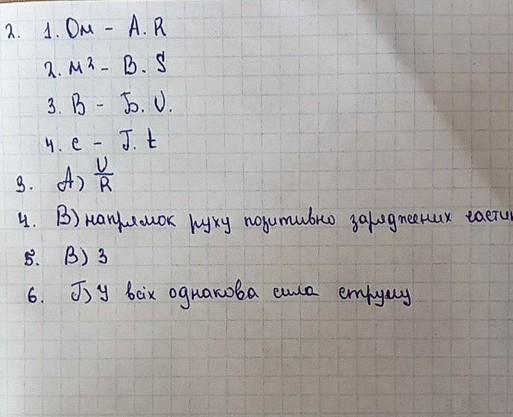 2. 1. Ом - А. R
2. м² - В. S
3. В - Б. U.
4. с - Г. t
3. А) U/R
4. В) напрямок руху позитивно заряджених частин
5. В) 3
6. Г) У всіх однакова сила струму